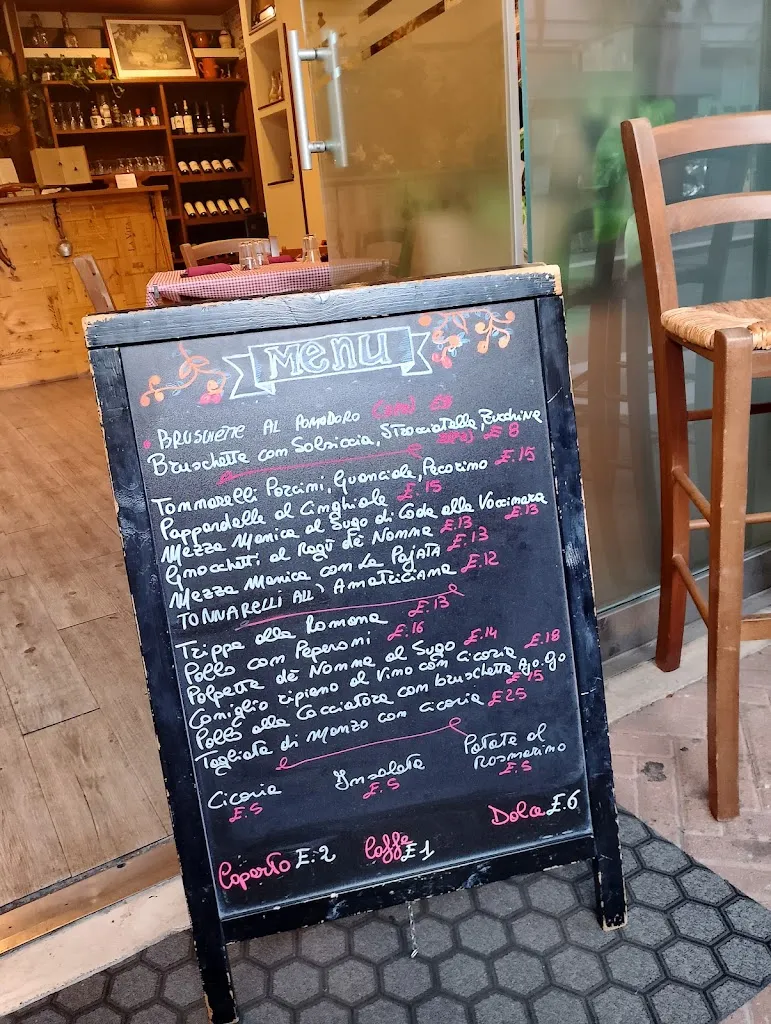 MENU
BRUSCHETTE AL POMODORO E 4
Bruschette con Salsiccia, Stracciatella, Zucchine E 8
Tonnarelli Porcini, Guanciale, Pecorino E.15
Pappardelle al Cinghiale E.15
Mezza Manica al Sugo di Coda alla Vaccinara E.13
Gnocchetti al Ragù de Nonna E.13
Mezza Manica con La Pajata E.13
TONNARELLI ALL' AMATRICIANA E.12
Trippa alla Romana E.13
Pollo con Peperoni E.16
Polpette de Nonna al Sugo E.14
Coniglio ripieno al vino con cicoria E.18
Pollo alla Cacciatora con bruschetta Go.Go E 15
Tagliata di Manzo con cicoria E 25
Cicoria E.5
Insalata E.5
Patate al Rosmarino E.5
Coperto E.2
Caffe E 1
Dolce E.6